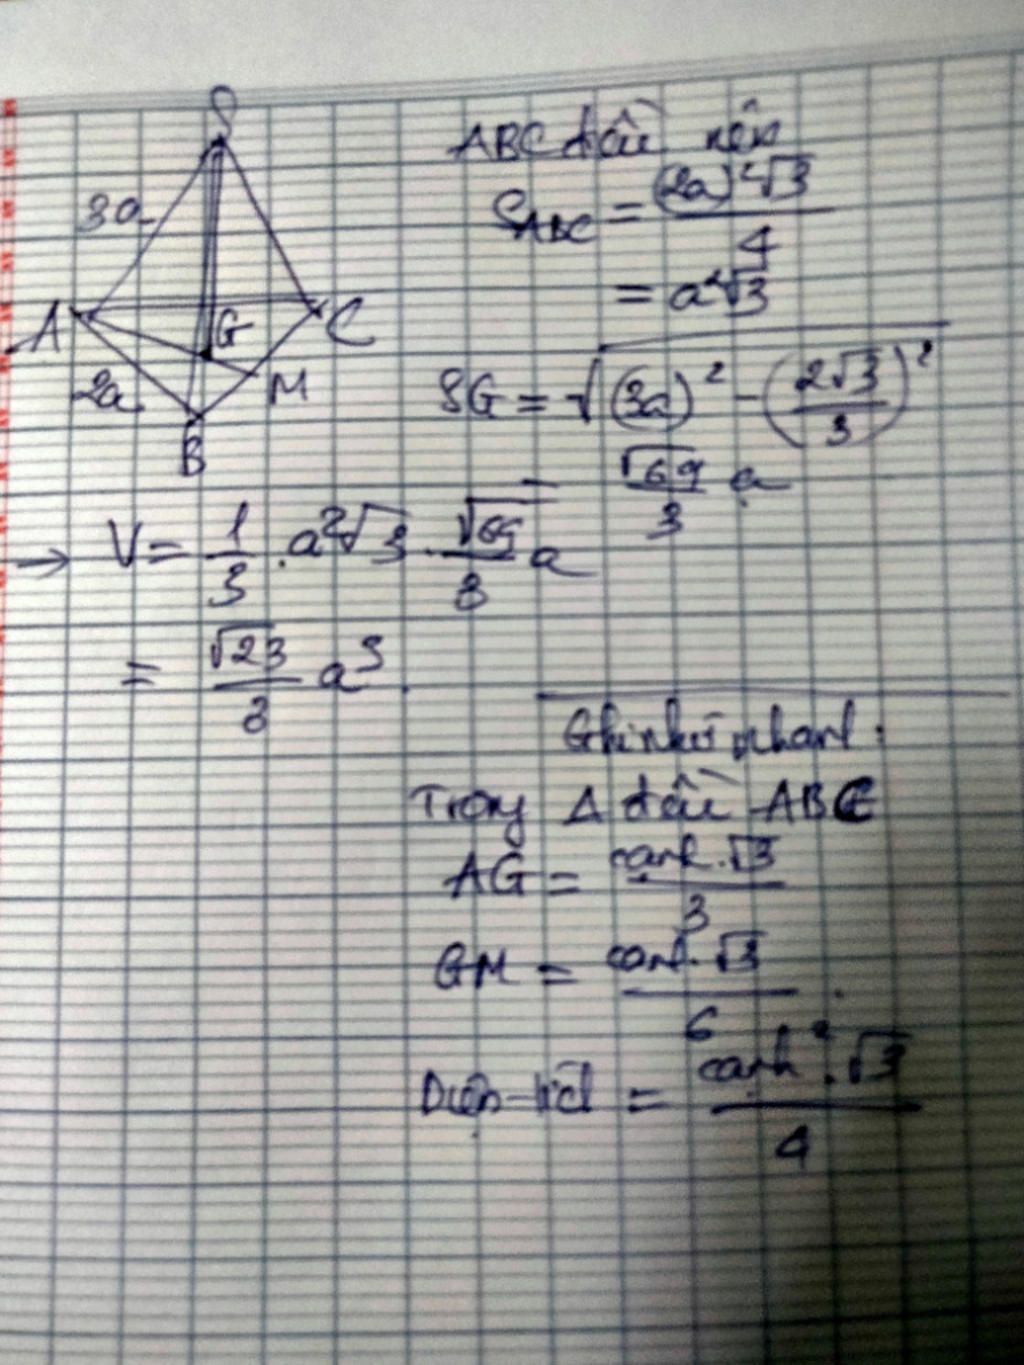 S
3a
A
G
C
2a
M
B
ABC đều nên
S_ABC = (2a)²√3 / 4
= a²√3
SG = √((3a)² - (2√3 / 3)²)
√69 / 3 a
→ V = 1/3 . a²√3 . √69 / 3 a
= √23 / 3 a³.
Ghi nhớ nhanh :
Trong Δ đều ABC
AG = cạnh . √3 / 3
GM = cạnh . √3 / 6 .
Diện tích = cạnh² . √3 / 4